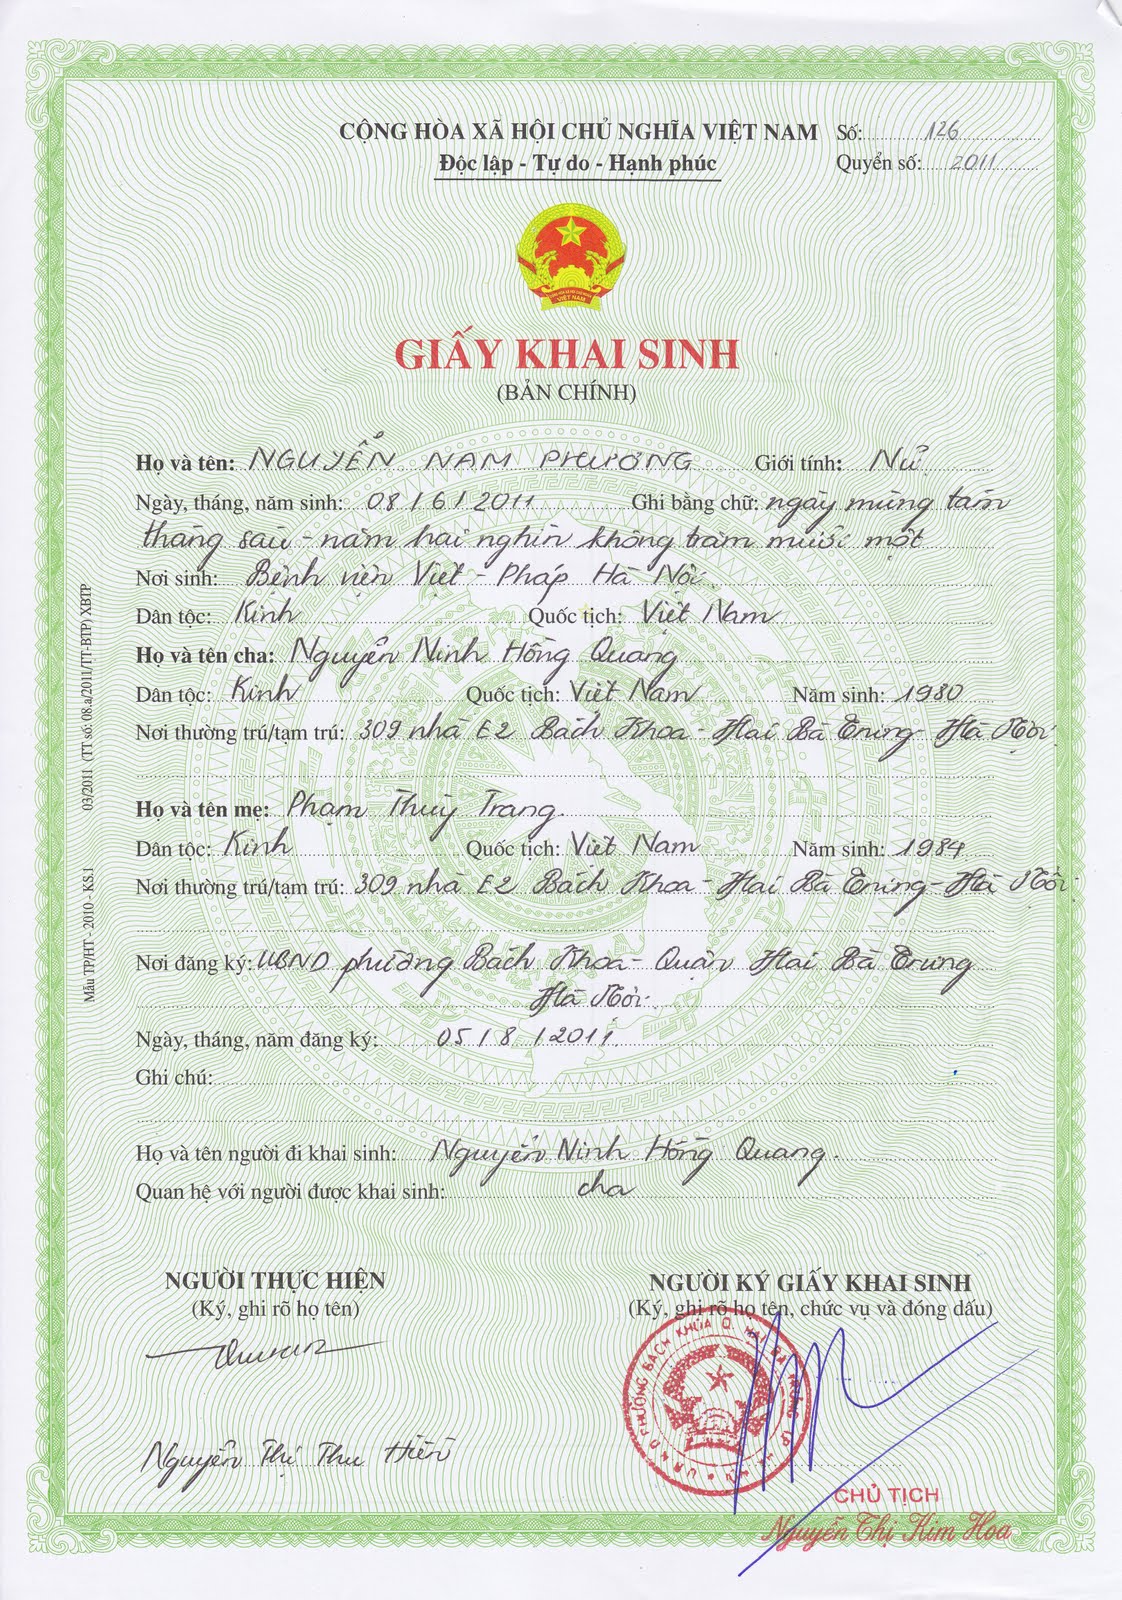 CỘNG HÒA XÃ HỘI CHỦ NGHĨA VIỆT NAM Số: 126
Độc lập - Tự do - Hạnh phúc Quyển số: 2011
VIỆT NAM
GIẤY KHAI SINH
(BẢN CHÍNH)
Họ và tên: NGUYỄN NAM PHƯƠNG Giới tính: Nữ
Ngày, tháng, năm sinh: 08/6/2011 Ghi bằng chữ: ngày mùng tám
tháng sáu - năm hai nghìn không trăm mười một
Nơi sinh: Bệnh viện Việt - Pháp Hà Nội
Dân tộc: Kinh Quốc tịch: Việt Nam
Họ và tên cha: Nguyễn Ninh Hồng Quang
Dân tộc: Kinh Quốc tịch: Việt Nam Năm sinh: 1980
Nơi thường trú/tạm trú: 309 nhà E2 Bách Khoa - Hai Bà Trưng - Hà Nội
Họ và tên mẹ: Phạm Thuỳ Trang
Dân tộc: Kinh Quốc tịch: Việt Nam Năm sinh: 1984
Nơi thường trú/tạm trú: 309 nhà E2 Bách Khoa - Hai Bà Trưng - Hà Nội
Nơi đăng ký: UBND phường Bách Khoa - Quận Hai Bà Trưng
Hà Nội
Ngày, tháng, năm đăng ký: 05/8/2011
Ghi chú:
Họ và tên người đi khai sinh: Nguyễn Ninh Hồng Quang
Quan hệ với người được khai sinh: cha
NGƯỜI THỰC HIỆN NGƯỜI KÝ GIẤY KHAI SINH
(Ký, ghi rõ họ tên) (Ký, ghi rõ họ tên, chức vụ và đóng dấu)
U.B.N.D PHƯỜNG BÁCH KHOA Q. HAI BÀ TRƯNG
Nguyễn Thị Thu Hiền
CHỦ TỊCH
Nguyễn Thị Kim Hoa
Mẫu TP/HT - 2010 - KS.1 03/2011 (TT số: 08.a/2011/TT-BTP) XBTP